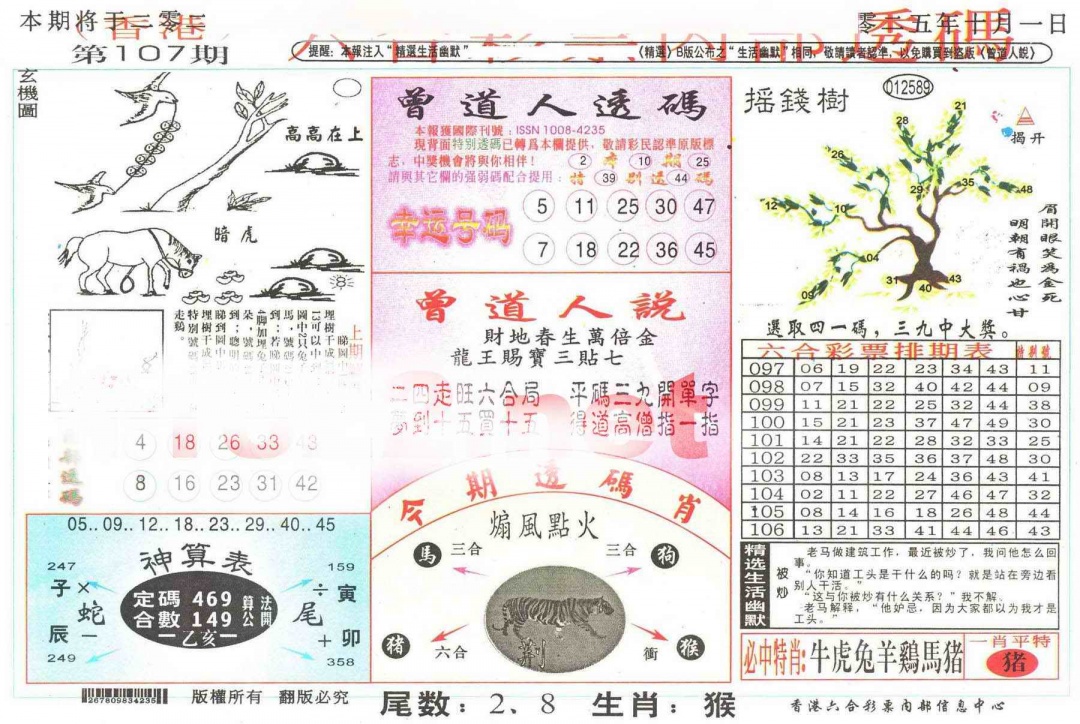 本期将于二零二
零二五年十月一日
香港
第107期
提醒：本報注入“精選生活幽默”
《精選》B版公布之“生活幽默”相同，敬請讀者認準，以免購買到盜版《曾道人說》
玄機圖
高高在上
暗虎
睇圖中
13可以中
圖中2只兔
馬，號碼
到：若睇
4脚加埋兔
朵，號碼
到：聰明
睇到圖中
埋樹干成
特別號碼
走鷄。
上期
4 18 26 33 43
8 16 23 31 42
透碼
曾道人透碼
本報獲國際刊號：ISSN 1008-4235
現背面特別透碼已轉爲本欄提供，敬請彩民認準原版標
志，中獎機會將與你相伴！
2 本 10 期 25
請與其它欄的强弱碼配合提用：
特 39 别 透 44 碼
幸运号码
5 11 25 30 47
7 18 22 36 45
曾道人説
財地春生萬倍金
龍王賜寶三貼七
二四走旺六合局 平碼三九開單字
夢到十五買十五 得道高僧指一指
搖錢樹
012589
揭开
21
28
26
29
35
48
12
10
04
31
40
43
09
眉開眼笑為金死
明朝有禍也心甘
選取四一碼，三九中大獎。
六合彩票排期表 特別號
097 06 19 22 23 34 43 11
098 07 15 32 40 42 44 09
099 11 21 22 25 32 44 38
100 15 21 23 37 47 49 30
101 14 21 22 28 32 33 25
102 22 33 35 36 37 48 30
103 08 13 17 24 36 43 41
104 02 11 22 27 46 47 32
105 08 14 16 18 26 48 44
106 13 21 33 41 44 46 43
05..09..12..18..23..29..40..45
神算表
247
159
子 × 蛇
÷ 寅
定碼 469
合數 149
算公
法開
乙亥
尾
辰 一
+ 卯
249
358
今期透碼肖
煽風點火
馬 三合
三合 狗
荆
豬 六合
衝 猴
精选生活幽默
被炒
老马做建筑工作，最近被炒了，我问他怎么回
事。
“你知道工头是干什么的吗？就是站在旁边看
别人干活。”
“这与你被炒有什么关系？”我不解。
老马解释，“他妒忌，因为大家都以为我才是
工头。”
必中特肖: 牛虎兔羊鷄馬豬
一肖平特
猪
267809834235
版權所有 翻版必究
尾数：2、8 生肖：猴
香港六合彩票内部信息中心